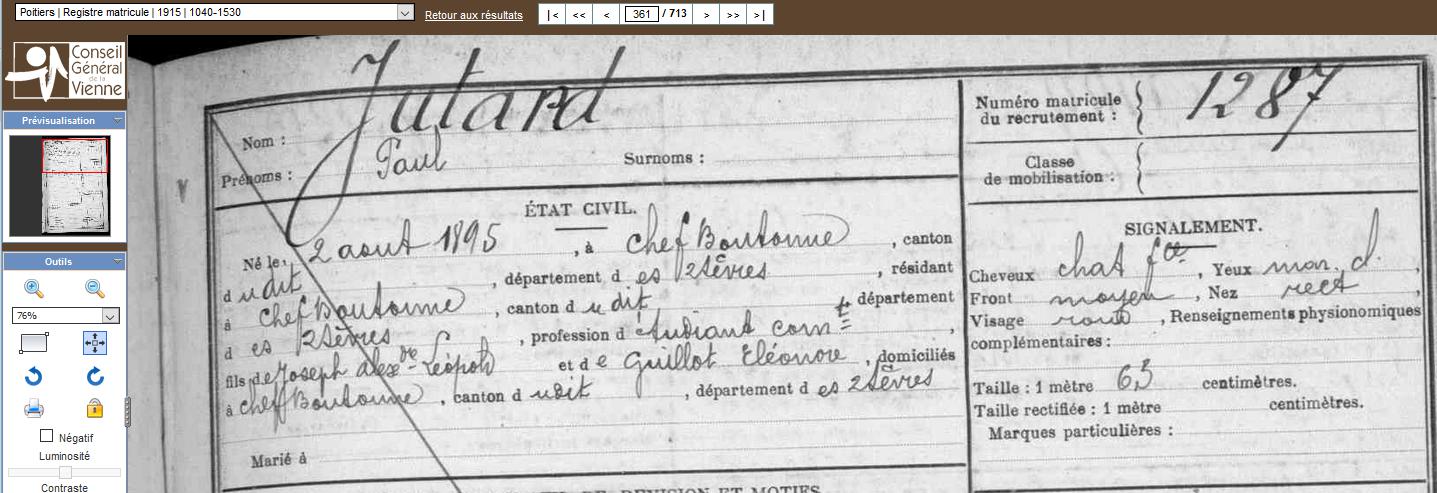 Poitiers | Registre matricule | 1915 | 1040-1530
Retour aux résultats
|< << < 361 / 713 > >> >|
Conseil
Général
de la
Vienne
Prévisualisation
Outils
76%
Négatif
Luminosité
Contraste
Jutard
Nom :
Prénoms : Paul Surnoms :
ÉTAT CIVIL.
Né le 2 aout 1895, à Chef Boutonne, canton
d udit, département d es 2 Sèvres, résidant
à Chef Boutonne, canton d u dit, département
d es 2 Sèvres, profession d étudiant
fils de Joseph Alexdre Léopold et d e Guillot Eléonore, domiciliés
à chef Boutonne, canton d udit, département d es 2 Sèvres
Marié à
Numéro matricule
du recrutement : 1287
Classe
de mobilisation :
SIGNALEMENT.
Cheveux chat fcé, Yeux mar. d.,
Front moyen, Nez rect,
Visage rond, Renseignements physionomiques
complémentaires :
Taille : 1 mètre 63 centimètres.
Taille rectifiée : 1 mètre centimètres.
Marques particulières :
DE REVISION ET MOTIFS